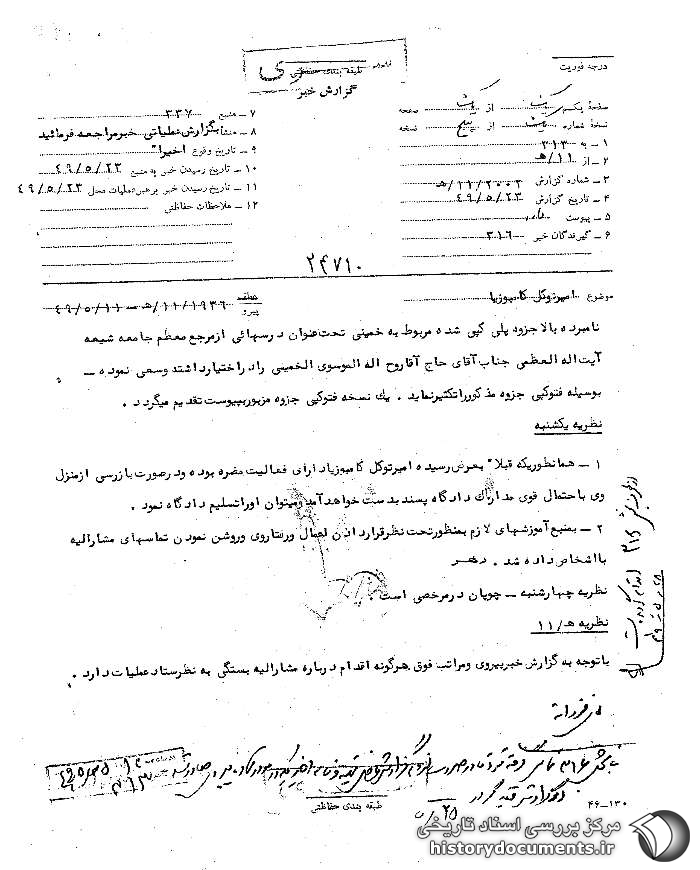 درجه فوریت
طبقه بندی حفاظتی سری
گزارش خبر
صفحه یکم از یک صفحه
نسخه شماره یک از پنج نسخه
۱ ـ به ۳۱۳
۲ ـ از ۱۱/ﻫ
۳ ـ شماره گزارش ۱۱/۲۰۰۲/ﻫ
۴ ـ تاریخ گزارش ۴۹/۵/۲۳
۵ ـ پیوست دارد
۶ ـ گیرندگان خبر ۳۱۶
۷ ـ منبع ۳۳۷
۸ ـ منشأ بگزارش عملیاتی خبر مراجعه فرمائید
۹ ـ تاریخ وقوع اخیرا"
۱۰ ـ تاریخ رسیدن خبر به منبع ۴۹/۵/۲۳
۱۱ ـ تاریخ رسیدن خبر برهبر عملیات محل ۴۹/۵/۲۳
۱۲ ـ ملاحظات حفاظتی
۲۴۷۱۰
موضوع امیرتوکل کامبوزیا
پیرو ۱۱/۱۹۳۶/ﻫ ـ ۴۹/۵/۱۱
نامبرده بالا جزوه پلی کپی شده مربوط به خمینی تحت عنوان درسهائی از مرجع معظم جامعه شیعه
آیت اله العظمی جناب آقای حاج آقا روح اله الموسوی الخمینی را در اختیار داشته و سعی نموده ـ
بوسیله فتوکپی جزوه مذکور را تکثیر نماید . یک نسخه فتوکپی جزوه مزبور بپیوست تقدیم میگردد .
نظریه یکشنبه
۱ ـ همانطوریکه قبلا" بعرض رسیده امیرتوکل کامبوزیا دارای فعالیت مضره بوده و در صورت بازرسی از منزل
وی با احتمال قوی مدارک دادگاه پسند بدست خواهد آمد و میتوان او را تسلیم دادگاه نمود .
۲ ـ بمنبع آموزشهای لازم بمنظور تحت نظر قرار دادن اعمال و رفتار وی و روشن نمودن تماسهای مشارالیه
با اشخاص داده شد .
نظریه چهارشنبه ـ چوپان در مرخصی است .
نظریه ۱۱/ﻫ
با توجه به گزارش خبر پیروی و مراتب فوق هرگونه اقدام درباره مشارالیه بستگی به نظر ستاد عملیات دارد .
طبقه بندی حفاظتی
۴۶ـ۱۳۰
۲۵/۵
مرکز بررسی اسناد تاریخی
historydocuments.ir